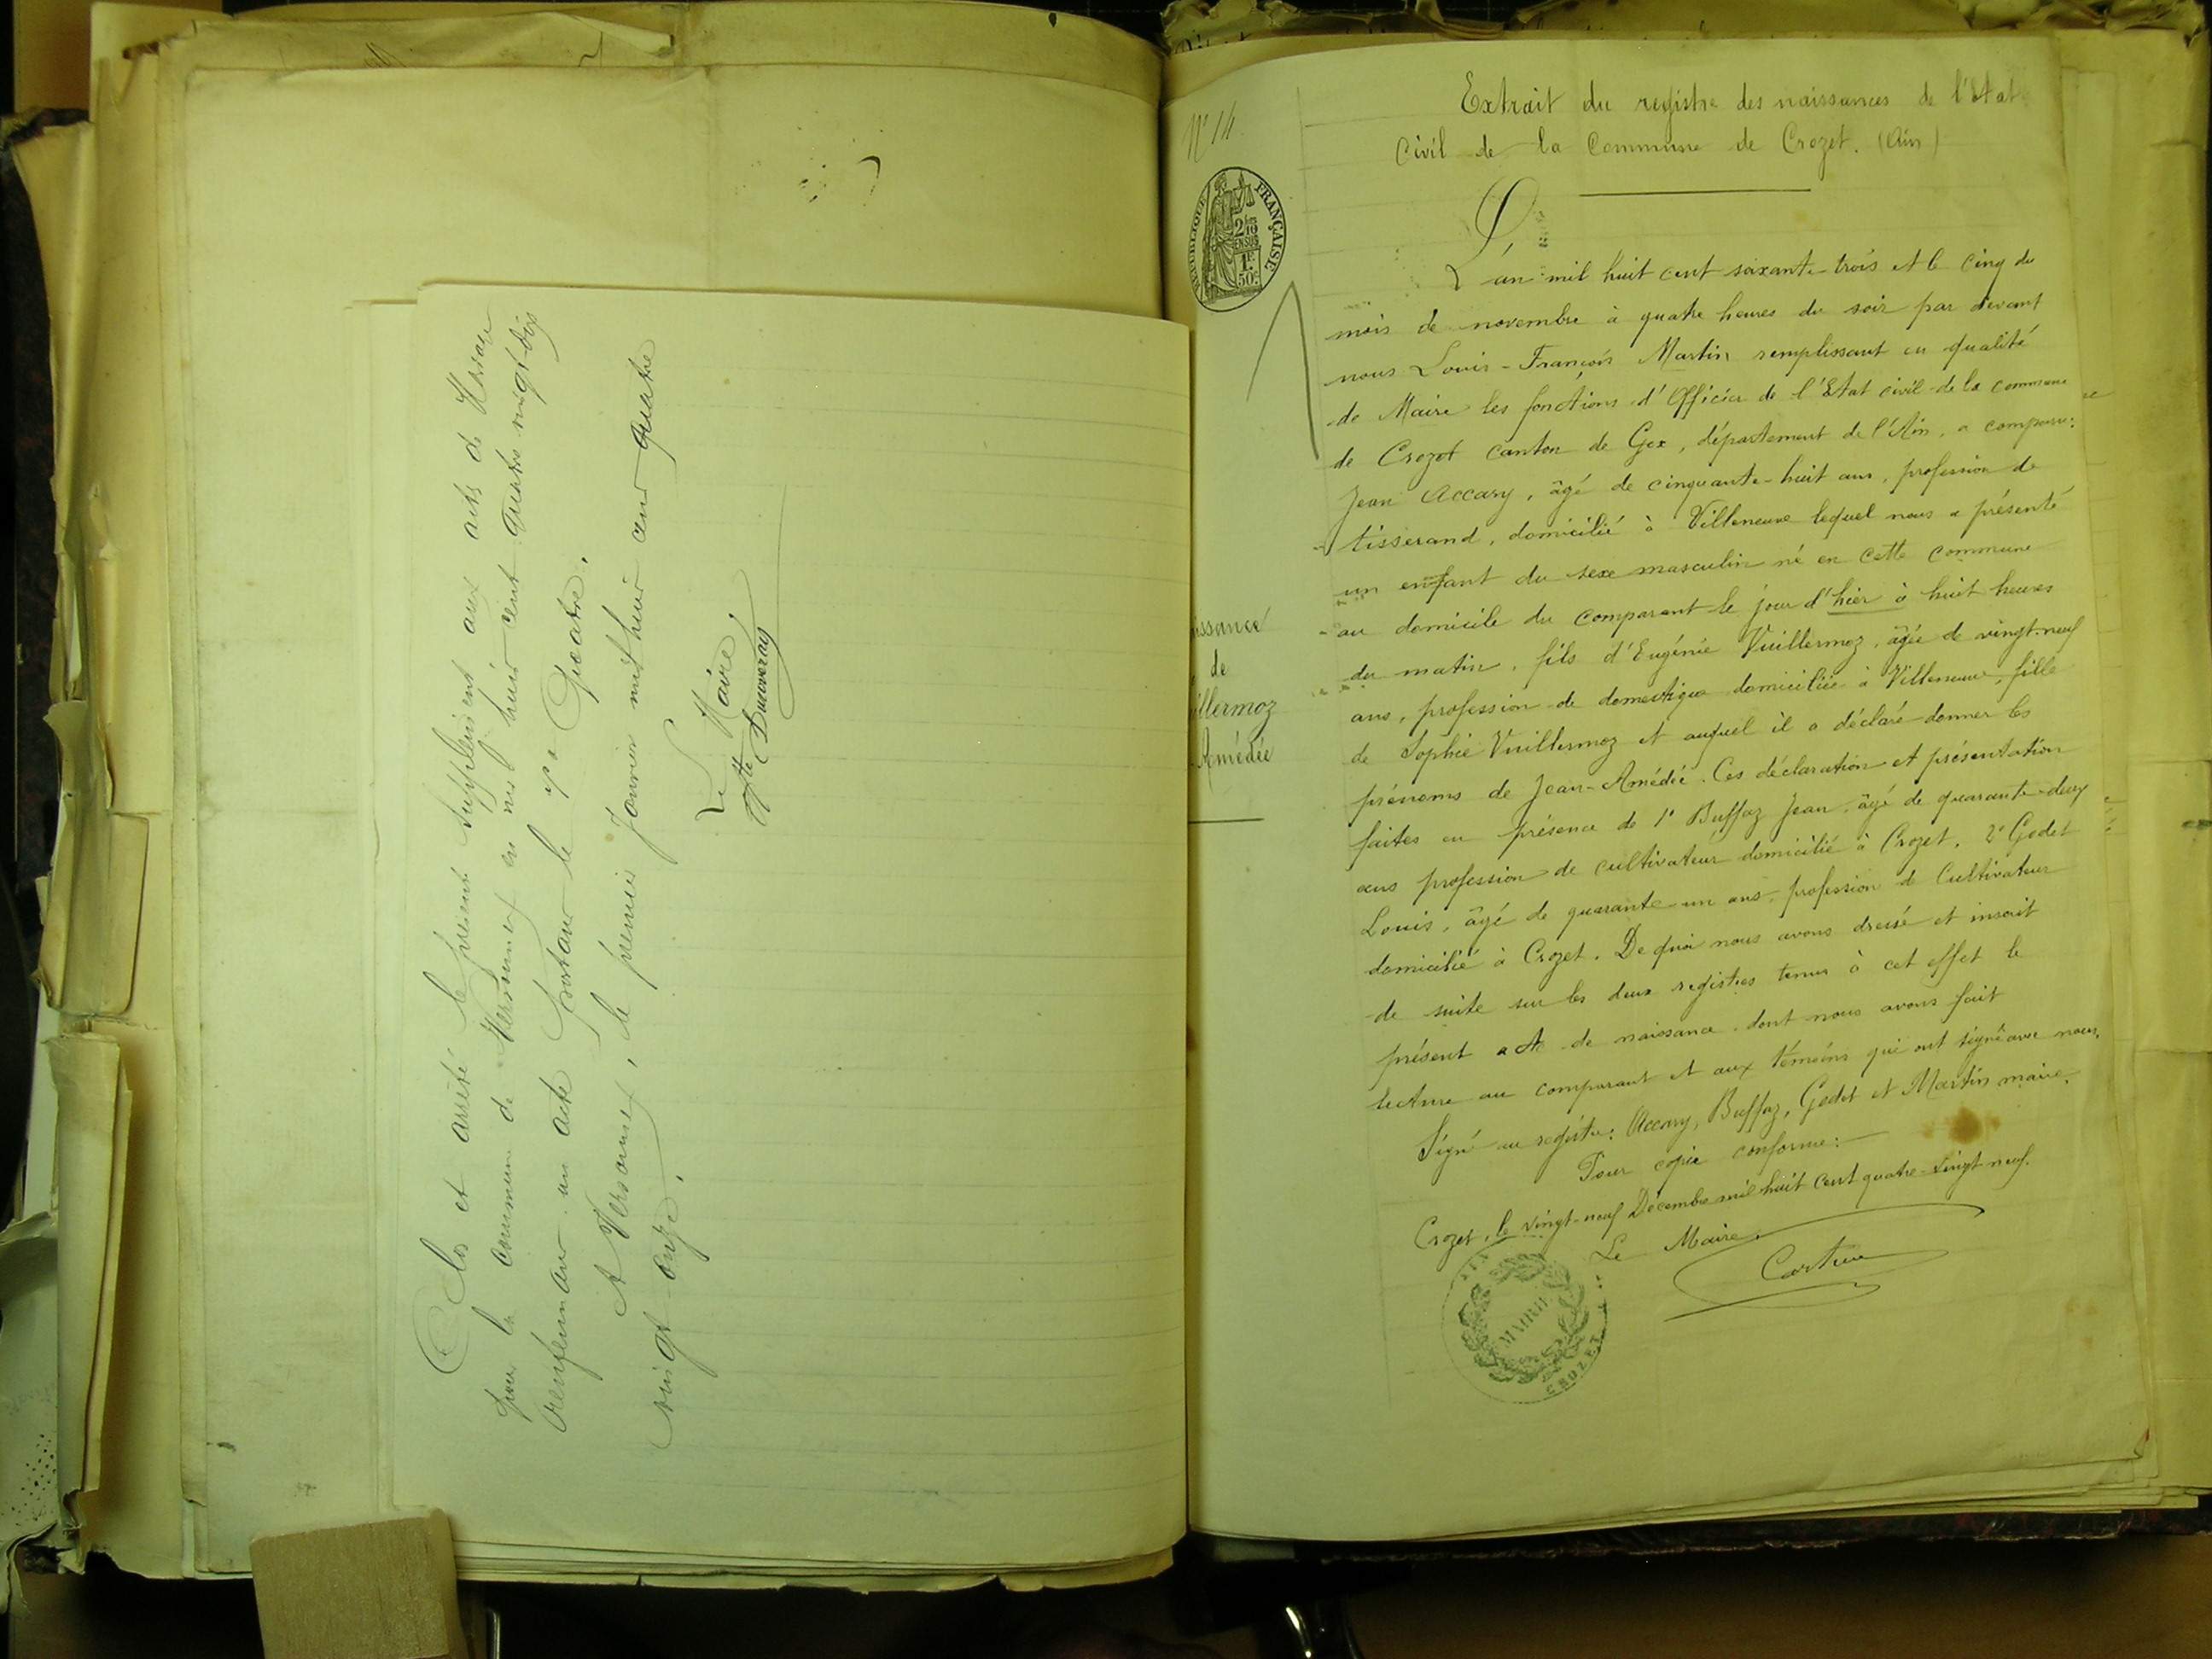 Clos et arrêté le présent supplément aux actes de Mariage
pour la commune de Versonnex en mil huit cent quatre vingt-dix
renfermant un acte portant le no Quatre.
A Versonnex, le premier Janvier mil huit cent quatre
vingt onze.
Le Maire,
Ducuveray
No 14
Extrait du registre des naissances de l'Etat
Civil de la Commune de Crozet. (Ain)
RÉPUBLIQUE FRANÇAISE
2/10
EN SUS
1F
50c
L'
L'an mil huit cent soixante-trois et le cinq du
mois de novembre à quatre heures du soir par devant
nous Louis-François Martin remplissant en qualité
de Maire les fonctions d'Officier de l'Etat civil de la commune
de Crozet canton de Gex, département de l'Ain, a comparu:
Jean Accary, âgé de cinquante-huit ans, profession de
tisserand, domicilié à Villeneuve lequel nous a présenté
un enfant du sexe masculin né en cette commune
au domicile du comparant le jour d'hier à huit heures
du matin, fils d'Eugénie Vuillermoz, âgée de vingt-neuf
ans, profession de domestique domiciliée à Villeneuve, fille
de Sophie Vuillermoz et auquel il a déclaré donner les
prénoms de Jean-Amédée. Ces déclaration et présentation
faites en présence de 1o Buffaz Jean, âgé de quarante-deux
ans profession de cultivateur domicilié à Crozet, 2o Godet
Louis, âgé de quarante-un ans, profession de Cultivateur
domicilié à Crozet. De quoi nous avons dressé et inscrit
de suite sur les deux registres tenus à cet effet le
présent acte de naissance dont nous avons fait
lecture au comparant et aux témoins qui ont signé avec nous.
Signé au registre: Accary, Buffaz, Godet et Martin maire.
Pour copie conforme:
Crozet, le vingt-neuf Décembre mil huit cent quatre-vingt neuf.
Le Maire,
MAIRIE
CROZET
issance
de
illermoz
Amédée